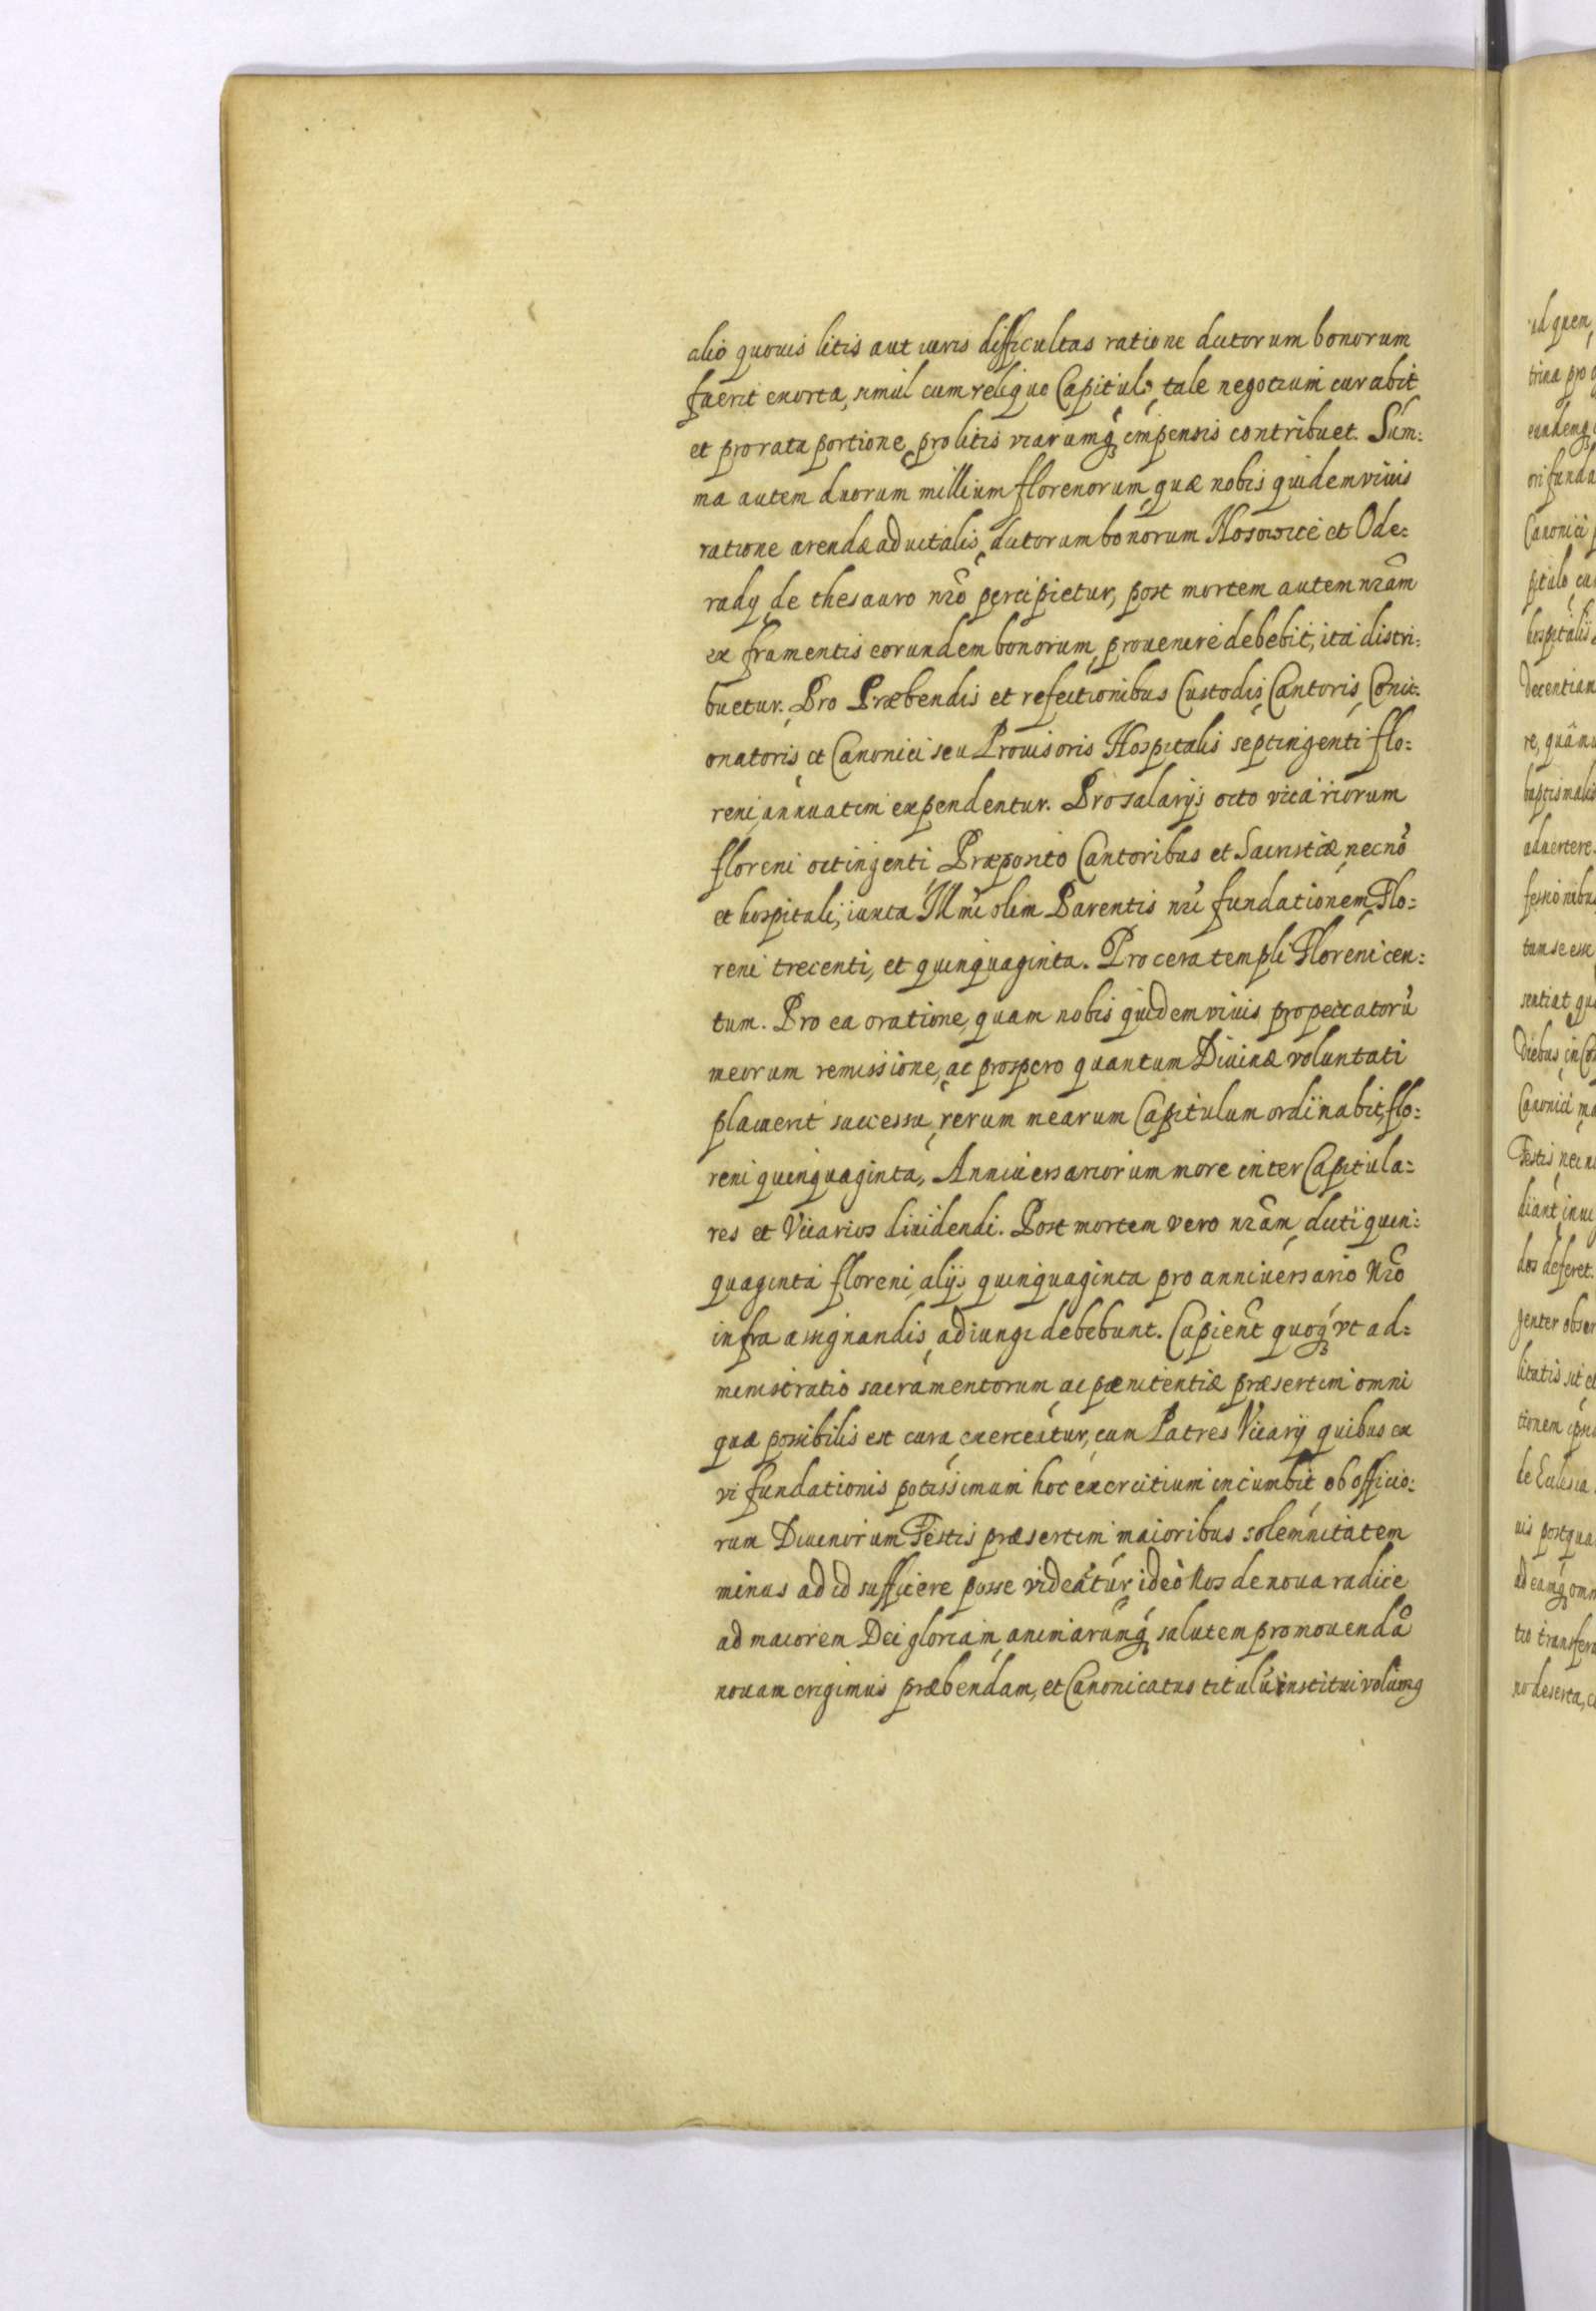 alio quouis litis aut iuris difficultas ratione dictorum bonorum
fuerit exorta, simul cum reliquo Capitulo, tale negotium curabit
et pro rata portione, pro litis viarumq̃ impensis contribuet. Sum:
ma autem duorum millium florenorum, quæ nobis quidem viuis
ratione arendæ aduitalis, dictorum bonorum Hosowice et Ode:
rady, de thesauro nr̃o percipietur, post mortem autem nr̃am
ex frumentis eorundem bonorum, prouenire debebit, ita distri:
buetur. Pro Præbendis et refectionibus Custodis, Cantoris, Conci:
onatoris, et Canonici seu Prouisoris Hospitalis septingenti flo:
reni, annuatim expendentur. Pro salarijs octo vicariorum
floreni octingenti, Præposito Cantoribus et Sacristiæ necnõ
et hospitali, iuxta Illmi olim Parentis nr̃i fundationem, Flo:
reni trecenti, et quinquaginta. Pro cera templi Floreni cen:
tum. Pro ea oratione, quam nobis quidem viuis, pro peccatorũ
meorum remissione, ac prospero quantum Diuinæ voluntati
placuerit successu, rerum mearum Capitulum ordinabit, flo:
reni quinquaginta, Anniuersariorum more inter Capitula:
res et Vicarios diuidendi. Post mortem vero nr̃am, dicti quin:
quaginta floreni, alijs quinquaginta pro anniuersario Nr̃o
infra assignandis, adiungi debebunt. Capient quoq̃ vt ad:
ministratio sacramentorum, ac pænitentiæ præsertim omni
quæ possibilis est cura, exerceatur, cum Patres Vicarij quibus ex
vi fundationis potissimum hoc exercitium incumbit ob officio:
rum Diuinorum Festis præsertim maioribus solemnitatem
minus ad id sufficere posse videatur, ideò Nos de noua radice
ad maiorem Dei gloriam, animarumq̃ salutem promouendã
nouam erigimus præbendam, et Canonicatus titulũ institui volumq